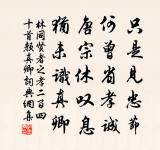 只是見忠誠
何曾省孝誠
唐宗休叹息
猶未識真卿
林同賢者之孝二百四
十首顏真卿詞典網集